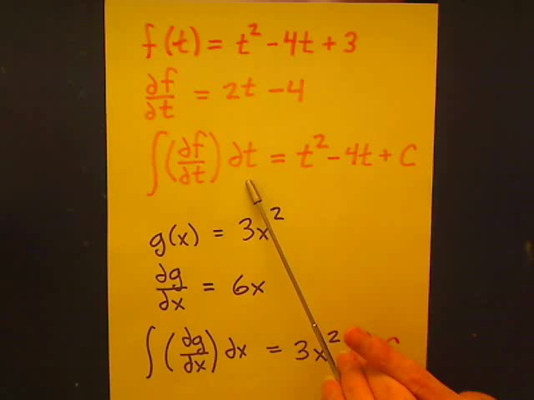 f(t) = t² - 4t + 3
∂f/∂t = 2t - 4
∫(∂f/∂t) ∂t = t² - 4t + C
g(x) = 3x²
∂g/∂x = 6x
∫(∂g/∂x) ∂x = 3x²